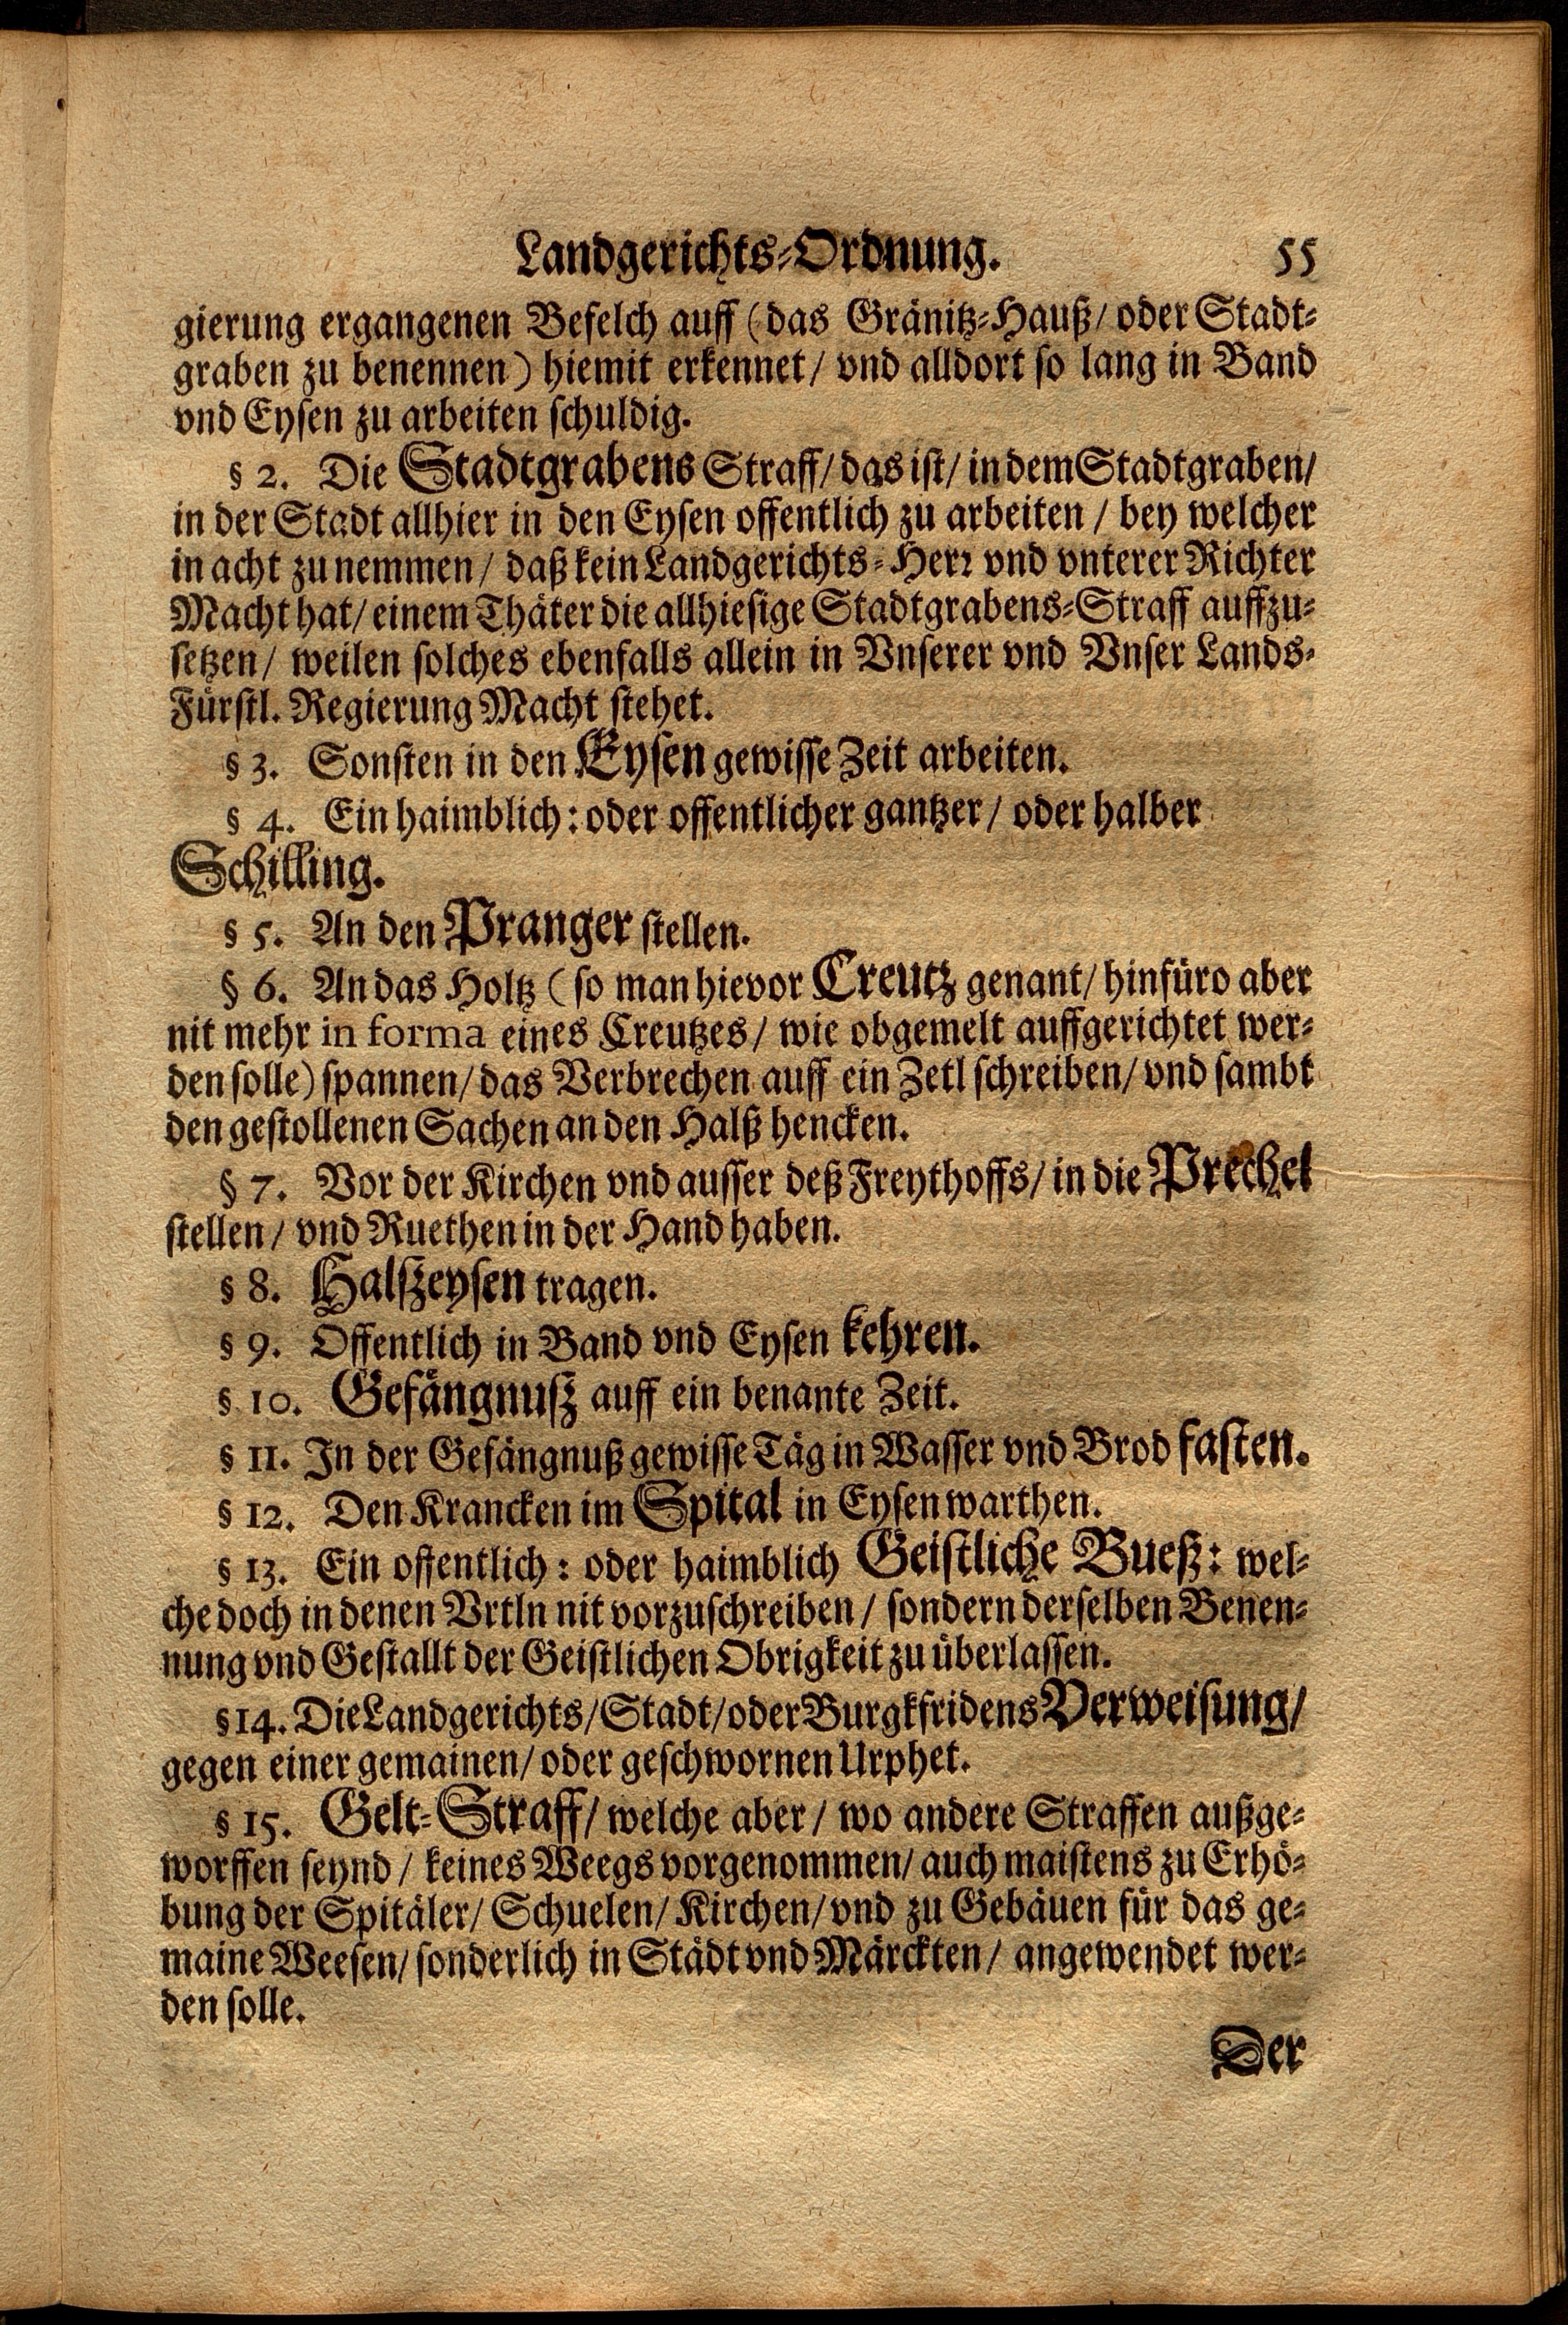 Landgerichts-Ordnung. 55
gierung ergangenen Befelch auff (das Gränitz-Hauß/ oder Stadt-
graben zu benennen) hiemit erkennet/ vnd alldort so lang in Band
vnd Eysen zu arbeiten schuldig.
§ 2. Die Stadtgrabens Straff/ das ist/ in dem Stadtgraben/
in der Stadt allhier in den Eysen offentlich zu arbeiten / bey welcher
in acht zu nemmen/ daß kein Landgerichts-Herr vnd vnterer Richter
Macht hat/ einem Thäter die allhiesige Stadtgrabens-Straff auffzu-
setzen/ weilen solches ebenfalls allein in Vnserer vnd Vnser Lands-
Fürstl. Regierung Macht stehet.
§ 3. Sonsten in den Eysen gewisse Zeit arbeiten.
§ 4. Ein haimblich: oder offentlicher gantzer/ oder halber
Schilling.
§ 5. An den Pranger stellen.
§ 6. An das Holtz (so man hievor Creutz genant/ hinfüro aber
nit mehr in forma eines Creutzes/ wie obgemelt auffgerichtet wer-
den solle) spannen/ das Verbrechen auff ein Zetl schreiben/ vnd sambt
den gestollenen Sachen an den Halß hencken.
§ 7. Vor der Kirchen vnd ausser deß Freythoffs/ in die Prechel
stellen/ vnd Ruethen in der Hand haben.
§ 8. Halßeysen tragen.
§ 9. Offentlich in Band vnd Eysen kehren.
§ 10. Gefängnuß auff ein benante Zeit.
§ 11. In der Gefängnuß gewisse Täg in Wasser vnd Brod fasten.
§ 12. Den Krancken im Spital in Eysen warthen.
§ 13. Ein offentlich: oder haimblich Geistliche Bueß: wel-
che doch in denen Vrtln nit vorzuschreiben/ sondern derselben Benen-
nung vnd Gestallt der Geistlichen Obrigkeit zu überlassen.
§ 14. Die Landgerichts/ Stadt/ oder Burgkfridens Verweisung/
gegen einer gemainen/ oder geschwornen Urphet.
§ 15. Gelt-Straff/ welche aber/ wo andere Straffen außge-
worffen seynd/ keines Weegs vorgenommen/ auch maistens zu Erhö-
bung der Spitäler/ Schuelen/ Kirchen/ vnd zu Gebäuen für das ge-
maine Weesen/ sonderlich in Städt vnd Märckten/ angewendet wer-
den solle.
Der